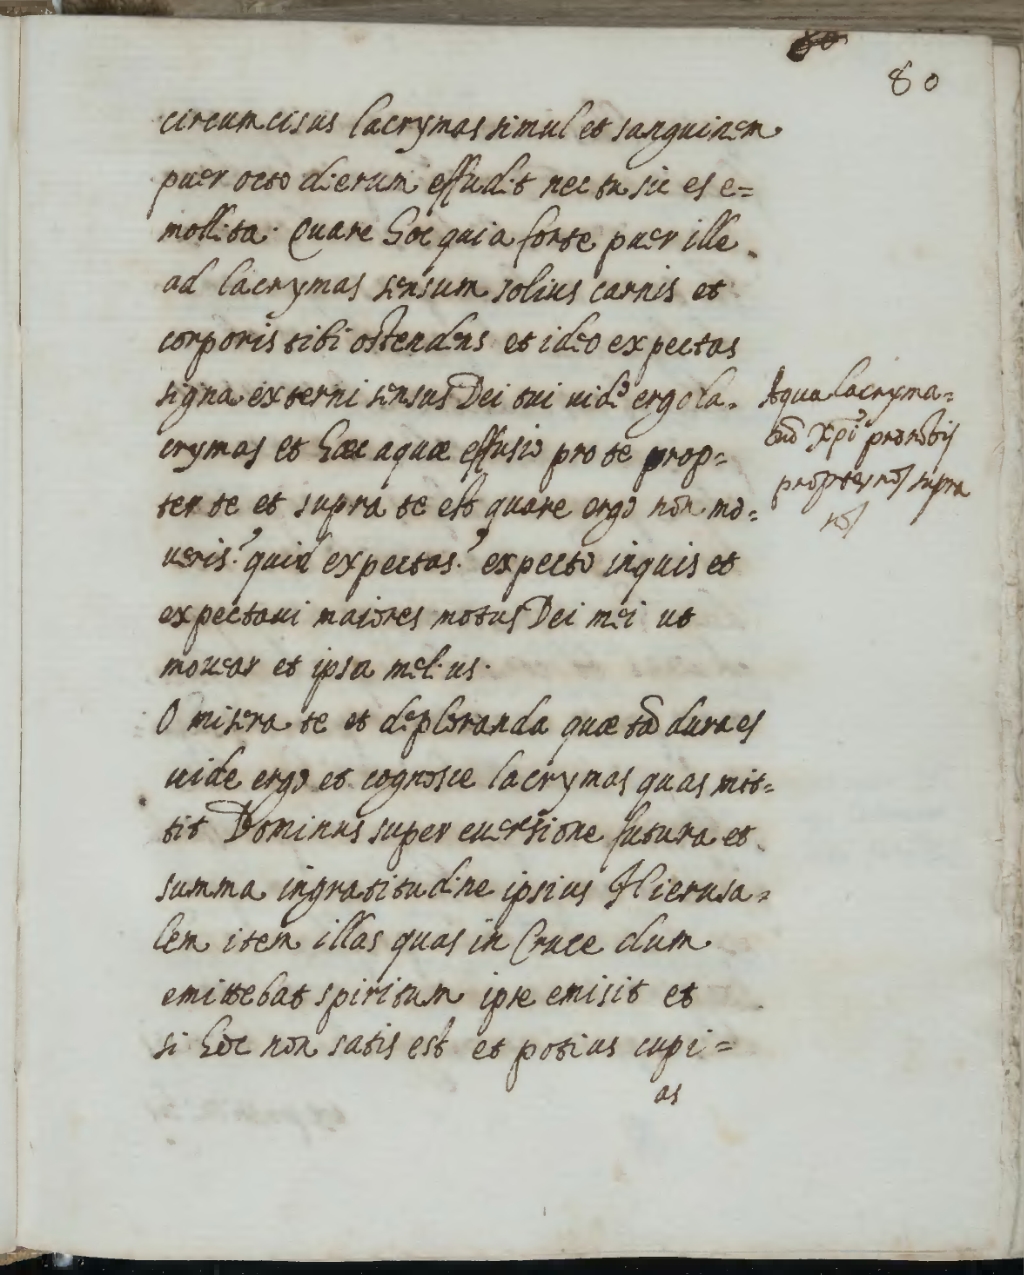 80
circumcisus lacrymas simul et sanguinem
puer octo dierum effudit nec tu sic es e=
mollita. Quare hoc quia forte puer ille
ad lacrymas sensum solius carnis et
corporis tibi ostendens et ideo expectas
signa externi sensus Dei tui uide ergo la-
crymas et haec aquae effusio pro te prop=
ter te et supra te est quare ergo non mo=
ueris? quid expectas? expecto inquis et
expectaui maiores motus Dei mei ut
mouear et ipsa melius.
O misera te et deploranda quae tā dura es
uide ergo et cognosce lacrymas quas mit=
tit Dominus super euersione futura et
summa ingratitudine ipsius Hierusa=
lem item illas quas in Cruce dum
emittebat spiritum ipse emisit et
si hoc non satis est et potius cupi=
as
Aqua lacryma=
Xpi pro nobis
propter nos supra
nos